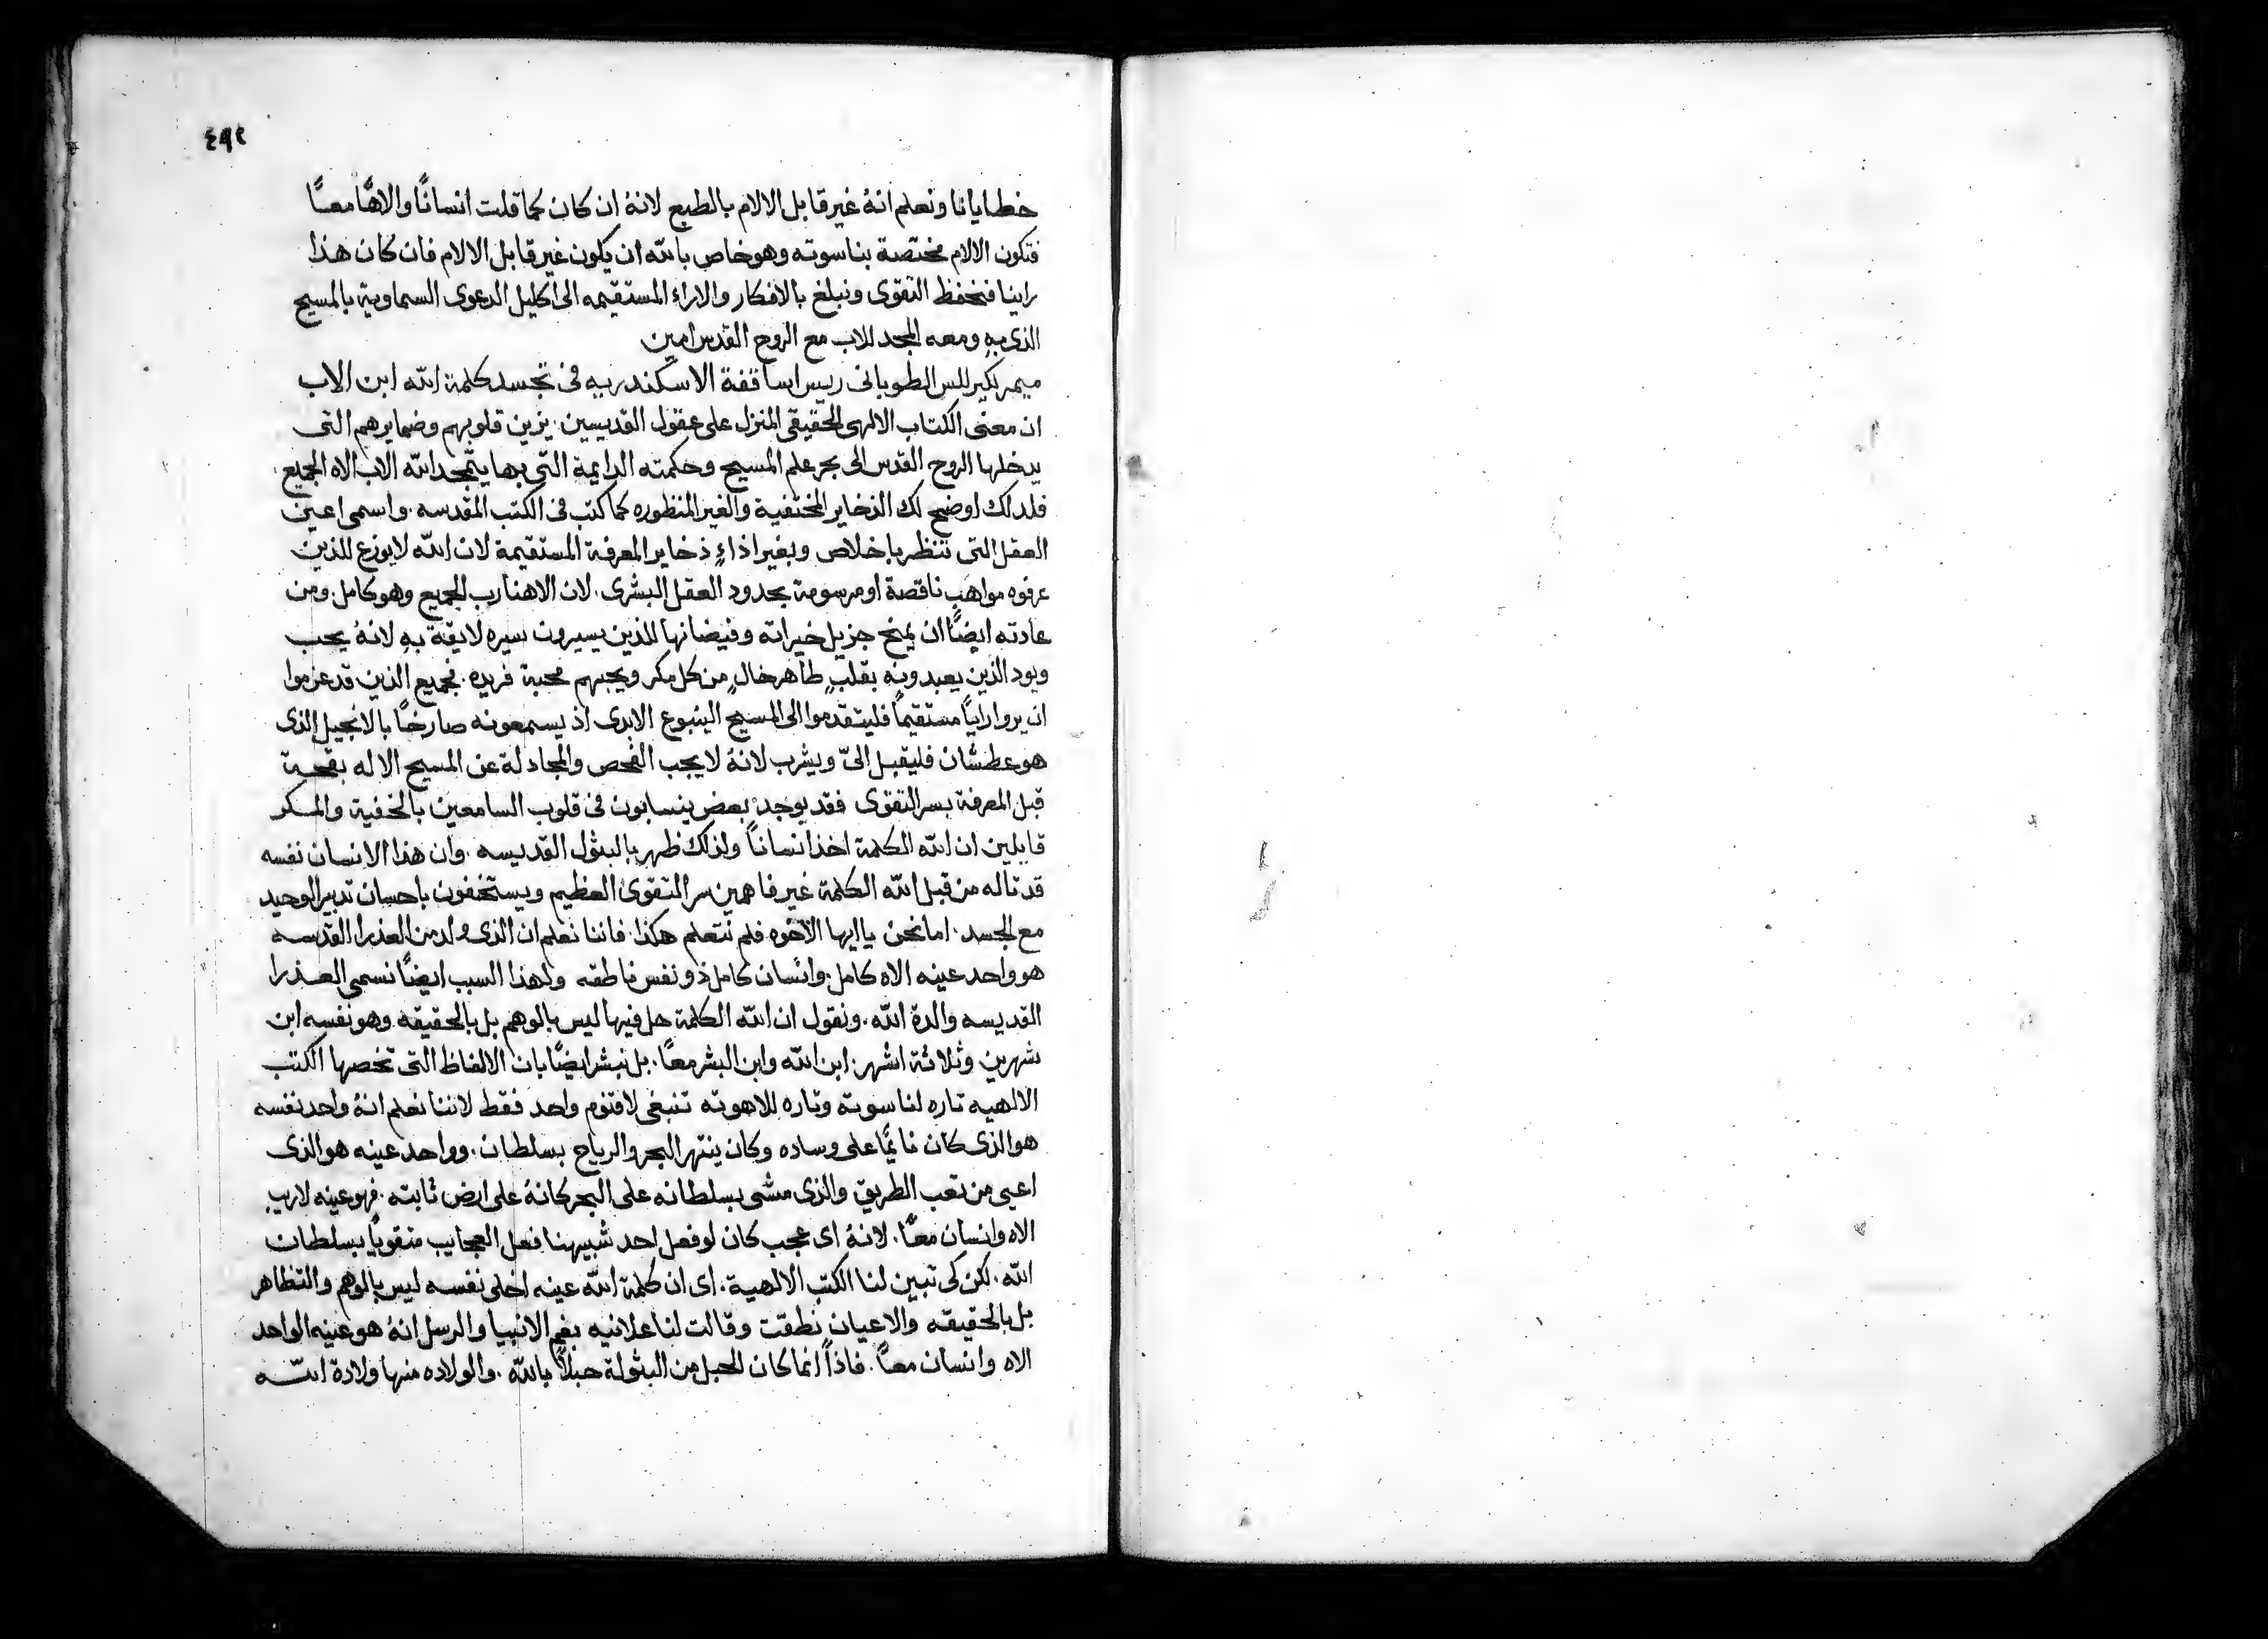 ٤٩٢
خطايانا ونعلم انهُ غير قابل الالام بالطبع لانهُ ان كان كما قلت انسانًا والاهًا معًا
فتكون الالام مختصة بناسوته وهو خاص بالله ان يكون غير قابل الالام فان كان هذا
راينا فنحفظ التقوى ونبلغ بالافكار والاراء المستقيمه الى اكليل الدعوى السماوية بالمسيح
الذى بهِ ومعه المجد للاب مع الروح القدس امين
ميمر لكيرللس الطوبانى رييس اساقفة الاسكندريه فى تجسد كلمة الله ابن الاب
ان معنى الكتاب الالهى الحقيقى المنزل على عقول القديسين يزين قلوبهم وضمايرهم التى
يدخلها الروح القدس الى بحر علم المسيح وحكمته الدايمة التى بها يتمجد الله الاب الاه الجميع
فلدلك اوضح لك الذخاير المختفية والغير المنظوره كما كتب فى الكتب المقدسه. واسمى اعين
العقل التى تنظر باخلاص وبغير اذاءٍ ذخاير المعرفة المستقيمة لان الله لا يوزع للذين
عرفوه مواهب ناقصة او مرسومة بحدود العقل البشرى. لان الاهنا رب الجميع وهو كامل. ومن
عادته ايضًا ان يمنح جزيل خيراته وفيضانها للذين يسيرون سيره لايقة بهِ لانهُ يحب
ويود الذين يعبدونه بقلبٍ طاهر خالٍ من كل مكر ويحبهم محبة فريده. فجميع الذين قد عزموا
ان يروا رايًا مستقيمًا فليتقدموا الى المسيح الينبوع الابدى اذ يسمعونه صارخًا بالانجيل الذى
هو عطشان فليقبل الىّ ويشرب لانهُ لا يجب الفحص والمجادلة عن المسيح الاله بقحة
قبل المعرفة بسر التقوى فقد يوجد بعض ينسابون فى قلوب السامعين بالخفية والمكر
قايلين ان الله الكلمة اخذ انسانًا ولذلك ظهر بالبثول القديسه. وان هذا الانسان نفسه
قد تاله من قبل الله الكلمة غير فاهمين سر التقوى العظيم ويستخفون باحسان تدبير الوحيد
مع الجسد. اما نحن يا ايها الاخوه فلم نتعلم هكذا. فاننا نعلم ان الذى ولد من العذرا القديسه
هو واحد عينه الاه كامل. وانسان كامل ذو نفس ناطقه ولهذا السبب ايضًا نسمى العذرا
القديسه والدة الله. ونقول ان الله الكلمة حل فيها ليس بالوهم بل بالحقيقه وهو نفسه ابن
شهرين وثلاثة اشهر. ابن الله وابن البشر معًا. بل نبشر ايضًا بان الالفاظ التى تخصها الكتب
الالهيه تاره لناسوته وتاره للاهوته تنبغى لاقنوم واحد فقط لاننا نعلم انهُ واحد نفسه
هو الذى كان نايمًا على وساده وكان ينتهر البحر والرياح بسلطان. وواحد عينه هو الذى
اعيى من تعب الطريق والذى مشى بسلطانه على البحر كانهُ على ارض ثابته. فهو عينه لاريب
الاه وانسان معًا. لانهُ اى عجب كان لو فعل احد شبيهنا فعل العجايب متقويًا بسلطان
الله. لكن كى تبين لنا الكتب الالهية. اى ان كلمة الله عينه اخلى نفسه ليس بالوهم والتظاهر
بل بالحقيقه والاعيان نطقت وقالت لنا علانيه بفم الانبيا والرسل انهُ هو عينه الواحد
الاه وانسان معًا. فاذًا انما كان الحبل من البثولة حبلًا بالله. والولاده منها ولادة الله